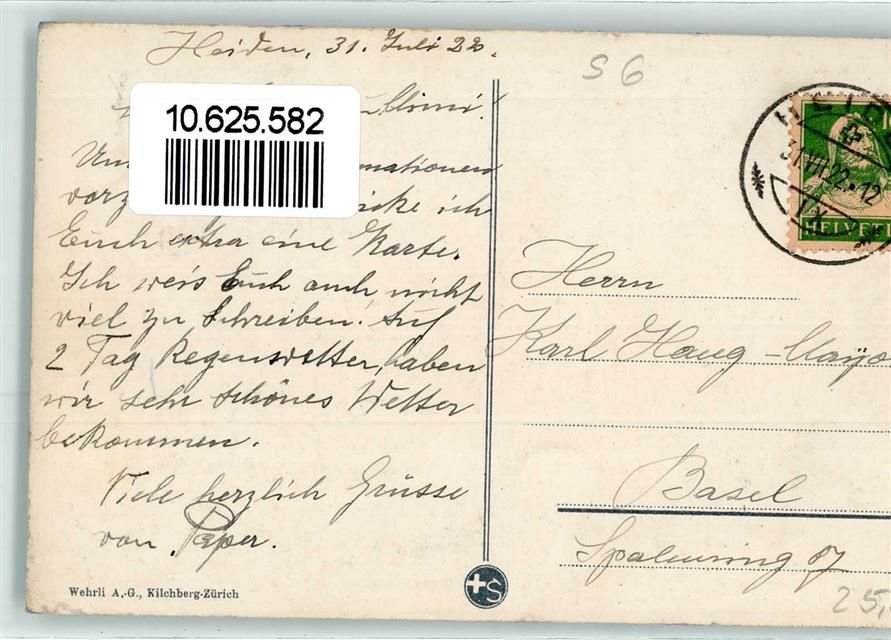 Heiden, 31. Juli 22.
S 6
10.625.582
HEIDEN
31.VII.22.-12
HELVETIA
ationen
ich
Euch extra eine Karte.
Ich weis Euch auch nicht
viel zu schreiben. Auf
2 Tag Regenwetter, haben
wir sehr schönes Wetter
bekommen.
Viele herzlich Grüsse
von Peper.
Herrn
Karl Haug-Mayo
Basel
Spalenring 87
Wehrli A.-G., Kilchberg-Zürich
25,